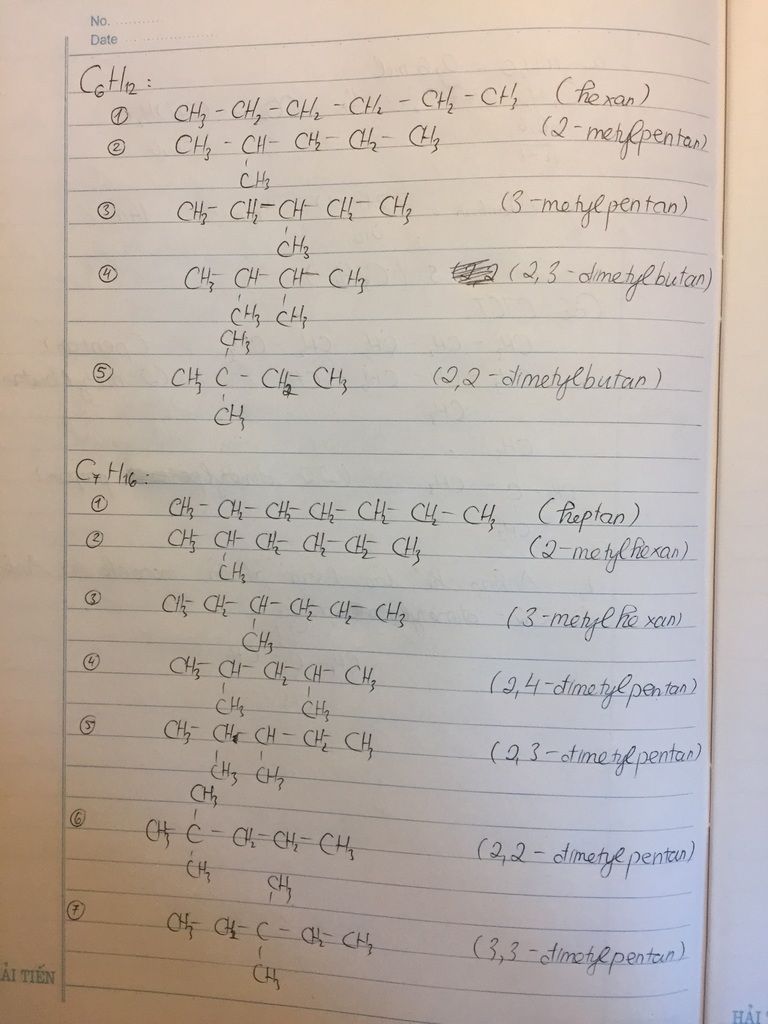 No. ............
Date ........................
C₆H₁₂ :
① CH₃ - CH₂ - CH₂ - CH₂ - CH₂ - CH₃ (hexan)
② CH₃ - CH - CH₂ - CH₂ - CH₃ (2-metylpentan)
CH₃
③ CH₃ - CH₂ - CH - CH₂ - CH₃ (3-metylpentan)
CH₃
④ CH₃ - CH - CH - CH₃ (2,3-dimetylbutan)
CH₃ CH₃
CH₃
⑤ CH₃ C - CH₂ - CH₃ (2,2-dimetylbutan)
CH₃
C₇H₁₆ :
① CH₃ - CH₂ - CH₂ - CH₂ - CH₂ - CH₂ - CH₃ (heptan)
② CH₃ - CH - CH₂ - CH₂ - CH₂ - CH₃ (2-metylhexan)
CH₃
③ CH₃ - CH₂ - CH - CH₂ - CH₂ - CH₃ (3-metylhexan)
CH₃
④ CH₃ - CH - CH₂ - CH - CH₃ (2,4-dimetylpentan)
CH₃ CH₃
⑤ CH₃ - CH - CH - CH₂ - CH₃ (2,3-dimetylpentan)
CH₃ CH₃
CH₃
⑥ CH₃ - C - CH₂ - CH₂ - CH₃ (2,2-dimetylpentan)
CH₃
CH₃
⑦ CH₃ - CH₂ - C - CH₂ - CH₃ (3,3-dimetylpentan)
CH₃
ẢI TIẾN
HẢI